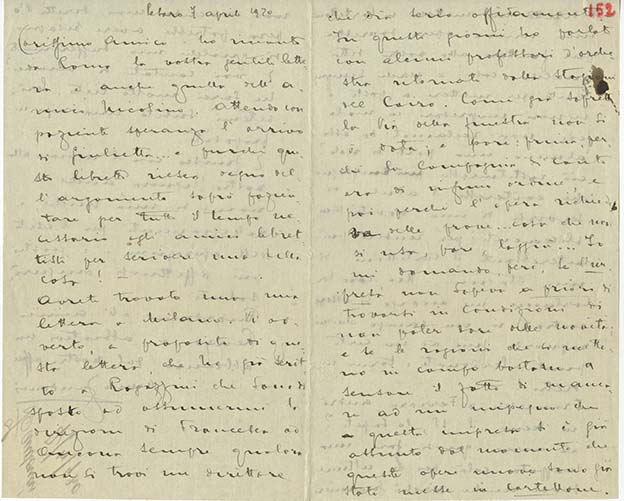 Pesaro 7 aprile 1920
Carissimo Amico ho ricevuto
da Roma la vostra gentile lette
ra e anche quella dell'a
mico Nicolino. Attendo con
paziente speranza l'arrivo
di Giulietta... e purchè que
sto libretto riesca degno del
l'argomento saprò pazien
tare per tutto il tempo ne
cessario agli amici libret
tisti per scrivere una bella
cosa!
Avrete trovato una mia
lettera a Milano. Vi av
verto, a proposito di que
sta lettera, che ho già scrit
to a Ragazzini che sono di
sposto ad assumermi la
direzione di Francesca ad
Ancona sempre qualora
non si trovi un direttore
che dia serio affidamento.
In questi giorni ho parlato
con alcuni professori d'orche
stra ritornati dalla stagione
del Cairo. Come già sapete
la Via della finestra non si
è data, e pare: prima, per
chè la Compagnia di canto
era di infimo ordine, e
poi perchè l'opera richiede
va delle prove... cosa che non
si usa, pare, laggiù... Io
mi domando, però, se l'im
presa non sapeva a priori di
trovarsi in condizioni di
non poter dare delle novità
e se le ragioni che si metto
no in campo bastano a
scusare il fatto di manca
re ad un impegno che
questa impresa si è già
assunto dal momento che
queste opere nuove sono già
state messe in cartellone.
152